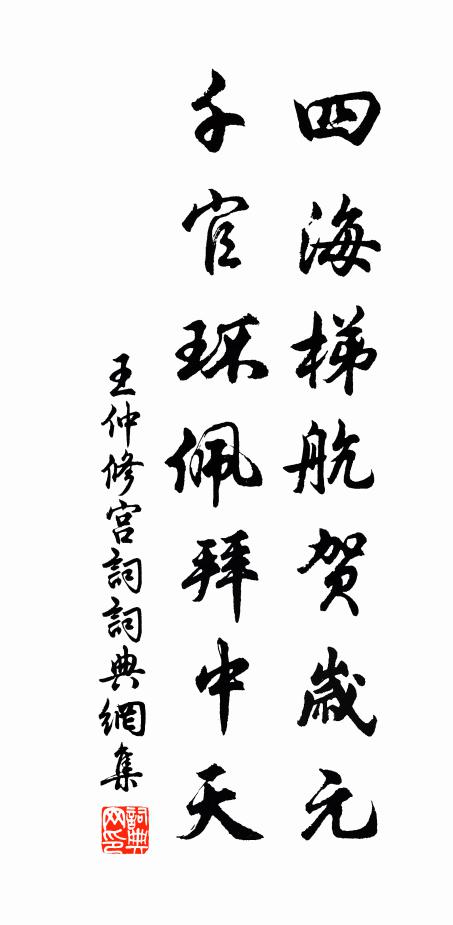 四海梯航贺歲元
千官环佩拜中天
王仲修宫詞詞典網集
詞典网印